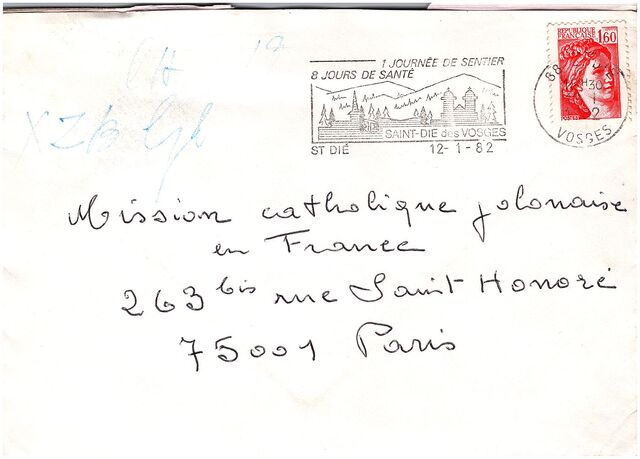 1 JOURNÉE DE SENTIER
8 JOURS DE SANTÉ
SAINT-DIE des VOSGES
ST DIÉ 12-1-82
RÉPUBLIQUE
FRANÇAISE
1,60
88
VOSGES
Mission catholique polonaise
en France
263 bis rue Saint Honoré
75001 Paris